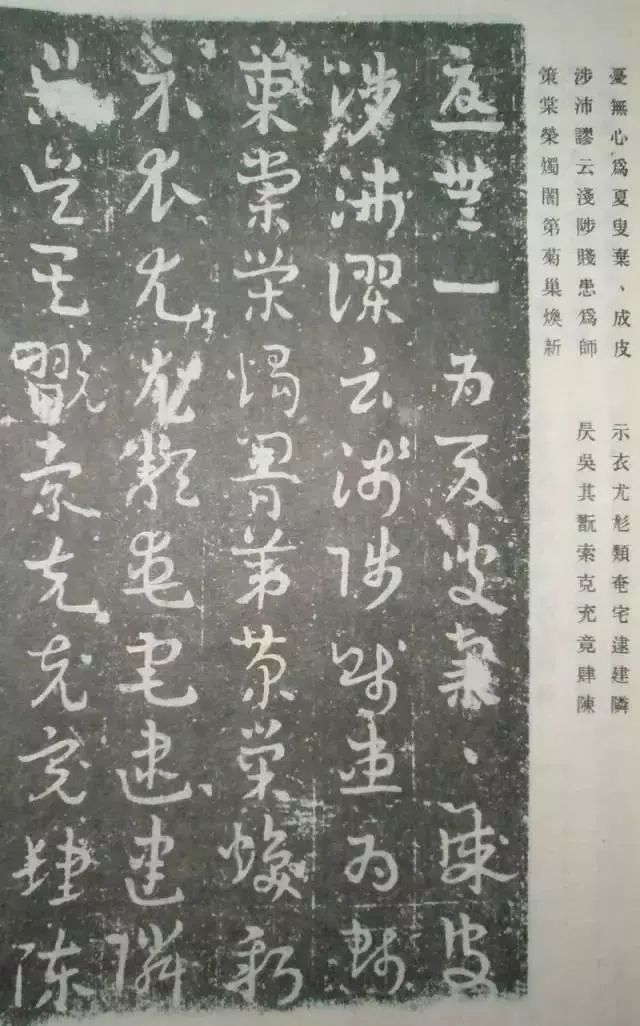 憂無心爲夏叟棄、成皮
涉沛謬云淺陟賤患爲師
策棠榮燭闇第菊巢煥新
示衣尤彪類奄宅逮建隣
昃吳其翫索克充竟肆陳